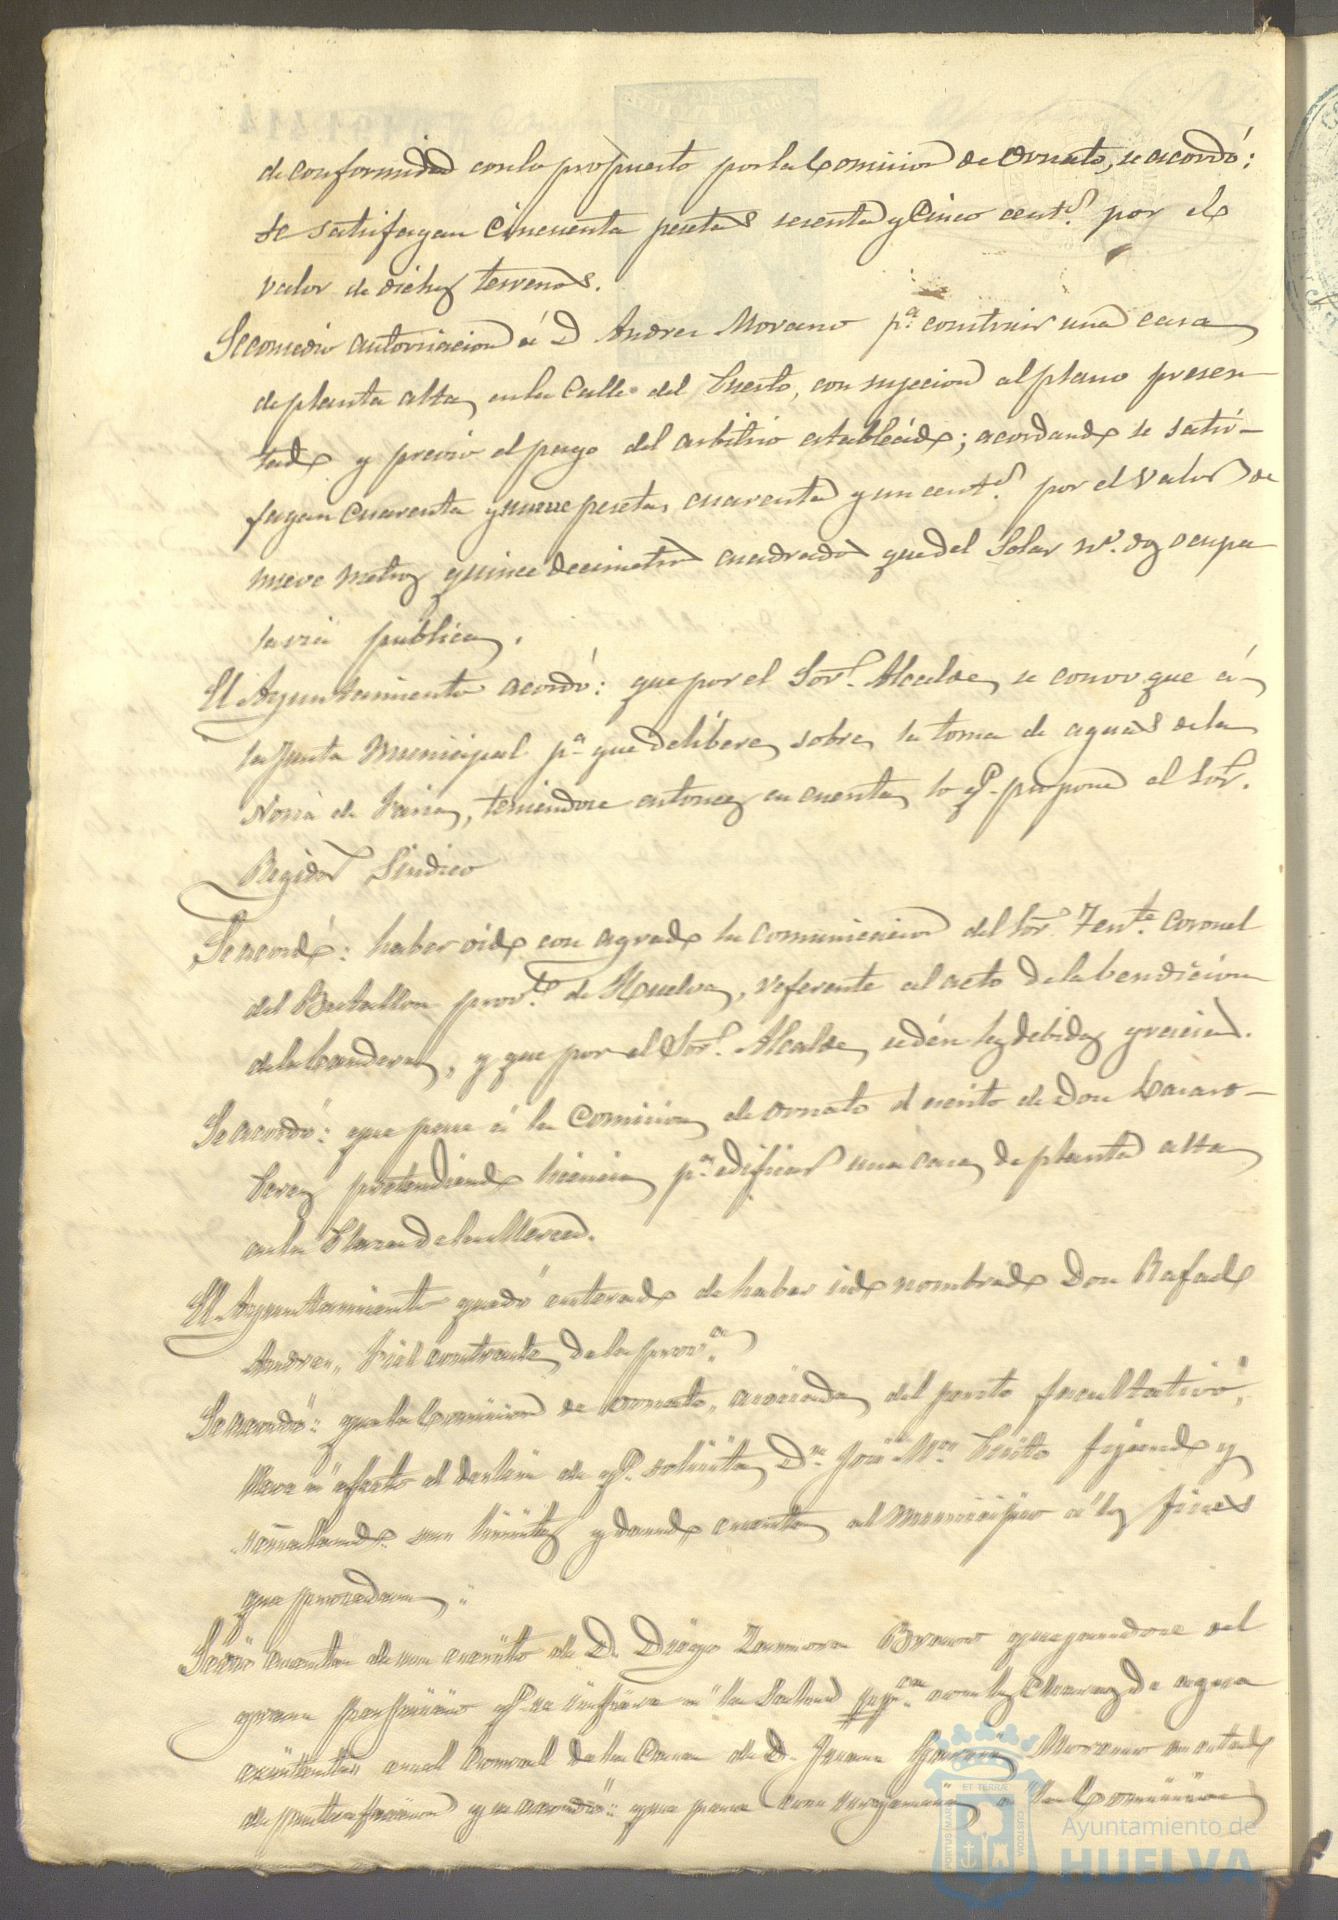 de conformidad con lo propuesto por la Comision de Ornato, se acordó:
se satisfagan Cincuenta pesetas sesenta y Cinco centˢ. por el
valor de dichos terrenos.
Se concedió autorizacion á D Andres Morano pª. construir una casa
de planta alta, en la Calle del Puerto, con sujecion al plano presen-
tado y previo el pago del arbitrio establecido; acordando se satis-
fagan Cuarenta y nueve pesetas, cuarenta y un centˢ. por el valor de
nueve metros quince decimetros cuadrados que del Solar nº. dos ocupa
la via pública.
El Ayuntamiento acordó: que por el Sorˢ. Alcalde, se convoque á
la Junta Municipal pª que delibere, sobre, la toma de aguas de la
Noria de, teniendose entonces en cuenta, lo q. propone el Sor.
Regidor Sindico
Se acordó: haber oido con agrado la comunicacion del Sor. Tenᵗᵉ. Coronel
del Batallon provˡ. de Huelva, referente al acto de la bendicion
de la bandera, y que por el Sor. Alcalde, se dén las debidas gracias.
Se acordó: que pase á la Comision de ornato el escrito de Don Lazaro
Perez pretendiendo licencia, pª edificar una casa, de planta alta
en la Plaza de la Merced.
El Ayuntamiento quedó enterado de haber sido nombrado Don Rafael
Andreu, Fiel contraste, de la provª.
Se acordó: que la Comision de ornato, asociada, del perito facultativo,
lleve á efecto el deslinde q. solicita, Dⁿ José Mª fijando y
señalando sus limites y dando cuenta, al Municipio á los fines
que procedan.
Se dió cuenta de un escrito de D. Diego Zamora Bravo quejandose del
grave perjuicio q. se infiere á la salud ppᶜᵃ. con las Charcas de agua
existentes en el Corral de la Casa de D. Juana Garcia Moreno en estado
de putrefaccion y se acordó: que pase con urgencia, á la Comision
ET TERRAE
PORTUS MARIS
CUSTODIA
Ayuntamiento de
HUELVA